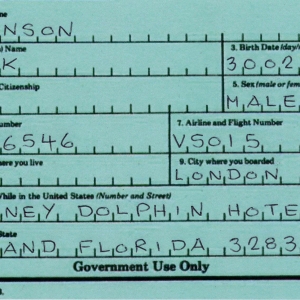 me
NSON
) Name 3. Birth Date (day/
K 3002
Citizenship 5. Sex (male or fem
MALE
umber 7. Airline and Flight Number
6546 VS015
here you live 9. City where you boarded
LONDON
While in the United States (Number and Street)
NEY DOLPHIN HOTE
State
AND FLORIDA 3283
Government Use Only